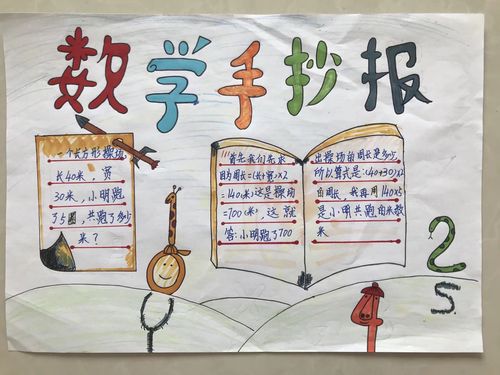 数学手抄报
一个长方形操场
长40米，宽
30米，小明跑
了5圈，共跑了多少
米？
首先我们先求
因为周长=(长+宽)×2
=140(米)这是操场
=700(米)，这就
答：小明跑了700
出操场的周长是多少，
所以算式是：(40+30)×2
的周长，我再用140×5
是小明共跑的米数
米
2
5